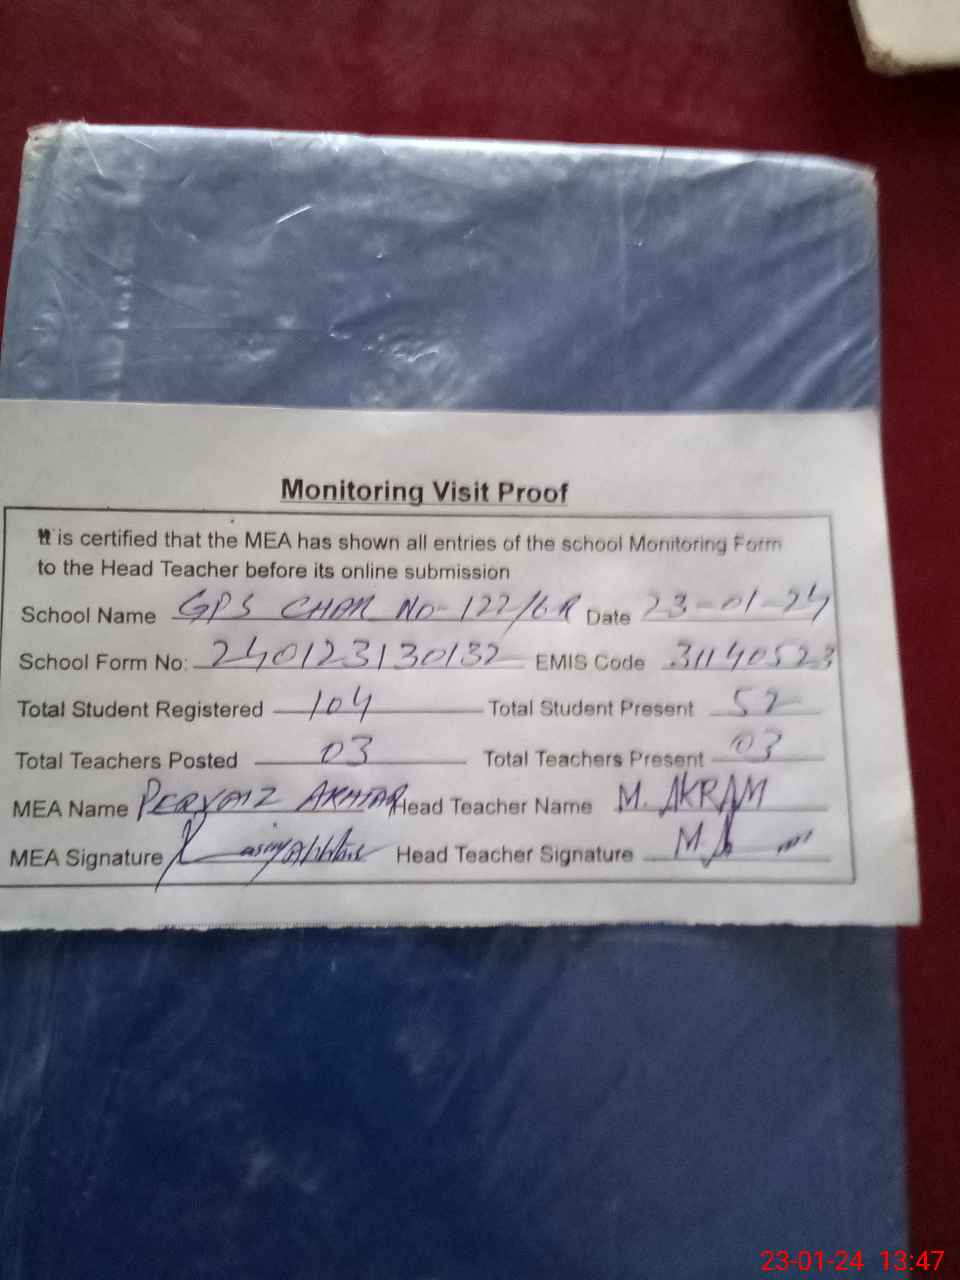 Monitoring Visit Proof
It is certified that the MEA has shown all entries of the school Monitoring Form
to the Head Teacher before its online submission
School Name GPS CHAK No-122/6R Date 23-01-24
School Form No: 240123130132 EMIS Code 31140523
Total Student Registered 104 Total Student Present 52
Total Teachers Posted 03 Total Teachers Present 03
MEA Name PERVAIZ AKHTAR Head Teacher Name M. AKRAM
MEA Signature Head Teacher Signature
23-01-24 13:47